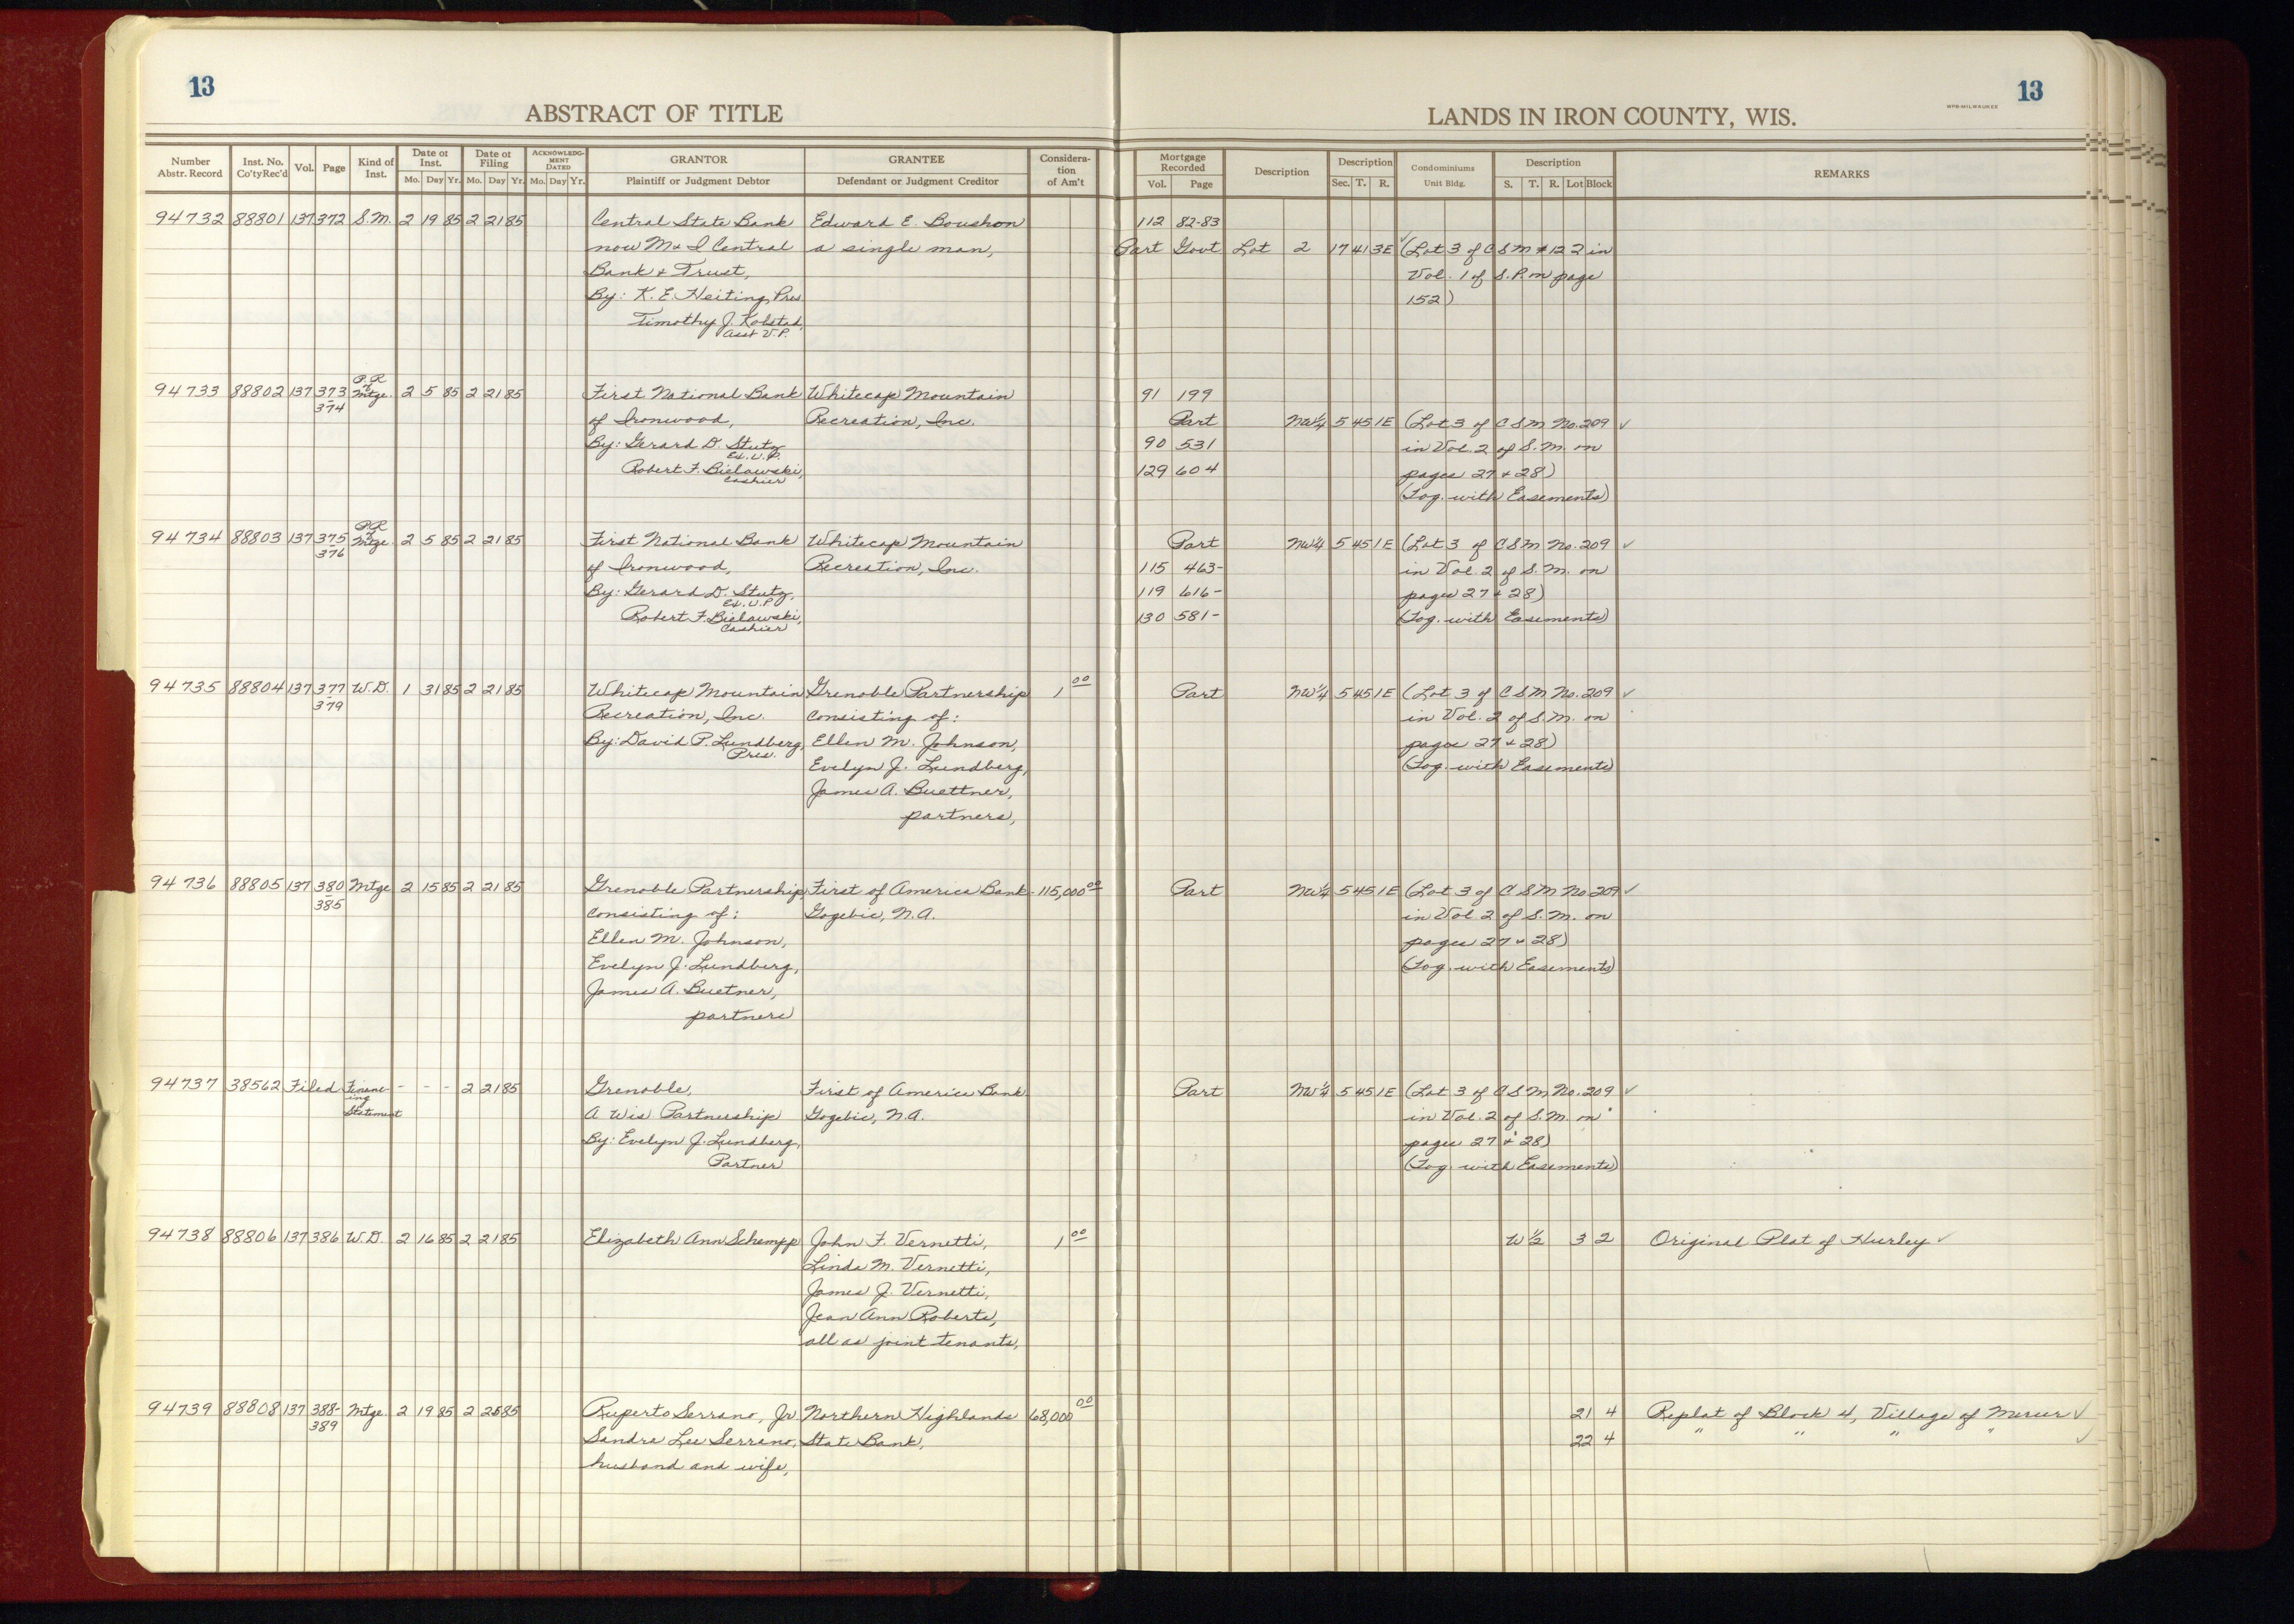 13
ABSTRACT OF TITLE
Number Abstr. Record | Inst. No. Co'tyRec'd | Vol. | Page | Kind of Inst. | Date of Inst. Mo. Day Yr. | Date of Filing Mo. Day Yr. | ACKNOWLEDGMENT DATED Mo. Day Yr. | GRANTOR Plaintiff or Judgment Debtor | GRANTEE Defendant or Judgment Creditor | Considera-tion of Am't
94732 88801 137 372 S.M. 2 19 85 2 21 85 Central State Bank Edward E. Boushon
now M & I Central a single man,
Bank & Trust,
By: K. E. Heiting, Pres
Timothy J. Kobstad,
Asst V.P.
94733 88802 137 373-374 P.R. of Mtge. 2 5 85 2 21 85 First National Bank Whitecap Mountain
of Ironwood, Recreation, Inc.
By: Gerard D. Stutz
Ex. V.P.
Robert F. Bielawski,
Cashier
94734 88803 137 375-376 P.R. of Mtge. 2 5 85 2 21 85 First National Bank Whitecap Mountain
of Ironwood, Recreation, Inc.
By: Gerard D. Stutz,
Ex. V.P.
Robert F. Bielawski,
Cashier
94735 88804 137 377-379 W.D. 1 31 85 2 21 85 Whitecap Mountain Grenoble Partnership 1 00
Recreation, Inc. consisting of:
By: David P. Lundberg, Ellen M. Johnson,
Pres. Evelyn J. Lundberg,
James A. Buettner,
partners,
94736 88805 137 380-385 Mtge 2 15 85 2 21 85 Grenoble Partnership, First of America Bank- 115,000 00
consisting of: Gogebic, N.A.
Ellen M. Johnson,
Evelyn J. Lundberg,
James A. Buetner,
partners
94737 38562 Filed Financ-ing Statement - - - 2 21 85 Grenoble, First of America Bank
A Wis Partnership Gogebic, N.A.
By: Evelyn J. Lundberg,
Partner
94738 88806 137 386 W.D. 2 16 85 2 21 85 Elizabeth Ann Schempp John F. Vernetti, 1 00
Linda M. Vernetti,
James J. Vernetti,
Jean Ann Roberts,
all as joint tenants,
94739 88808 137 388-389 Mtge. 2 19 85 2 25 85 Ruperto Serrano, Jr. Northern Highlands 68,000 00
Sandra Lee Serrano, State Bank,
husband and wife,
13
WPB-MILWAUKEE
LANDS IN IRON COUNTY, WIS.
Mortgage Recorded Vol. Page | Description | Description Sec. T. R. | Condominiums Unit Bldg. | Description S. T. R. Lot Block | REMARKS
112 82-83
Part Govt Lot 2 17 41 3E (Lot 3 of C S M #122 in
Vol. 1 of S.P. on page
152)
91 199
Part NW¼ 5 45 1E (Lot 3 of C S M No. 209 ✓
90 531 in Vol. 2 of S.M. on
129 604 pages 27 & 28)
(Tog. with Easements)
Part NW¼ 5 45 1E (Lot 3 of C S M No. 209 ✓
115 463- in Vol. 2 of S.M. on
119 616- pages 27 & 28)
130 581- (Tog. with Easements)
Part NW¼ 5 45 1E (Lot 3 of C S M No. 209 ✓
in Vol. 2 of S.M. on
pages 27 & 28)
(Tog. with Easements)
Part NW¼ 5 45 1E (Lot 3 of C S M No. 209 ✓
in Vol. 2 of S.M. on
pages 27 & 28)
(Tog. with Easements)
Part NW¼ 5 45 1E (Lot 3 of C S M No. 209 ✓
in Vol. 2 of S.M. on
pages 27 & 28)
(Tog. with Easements)
W ½ 3 2 Original Plat of Hurley ✓
21 4 Replat of Block 4, Village of Mercer ✓
22 4 " " " " ✓